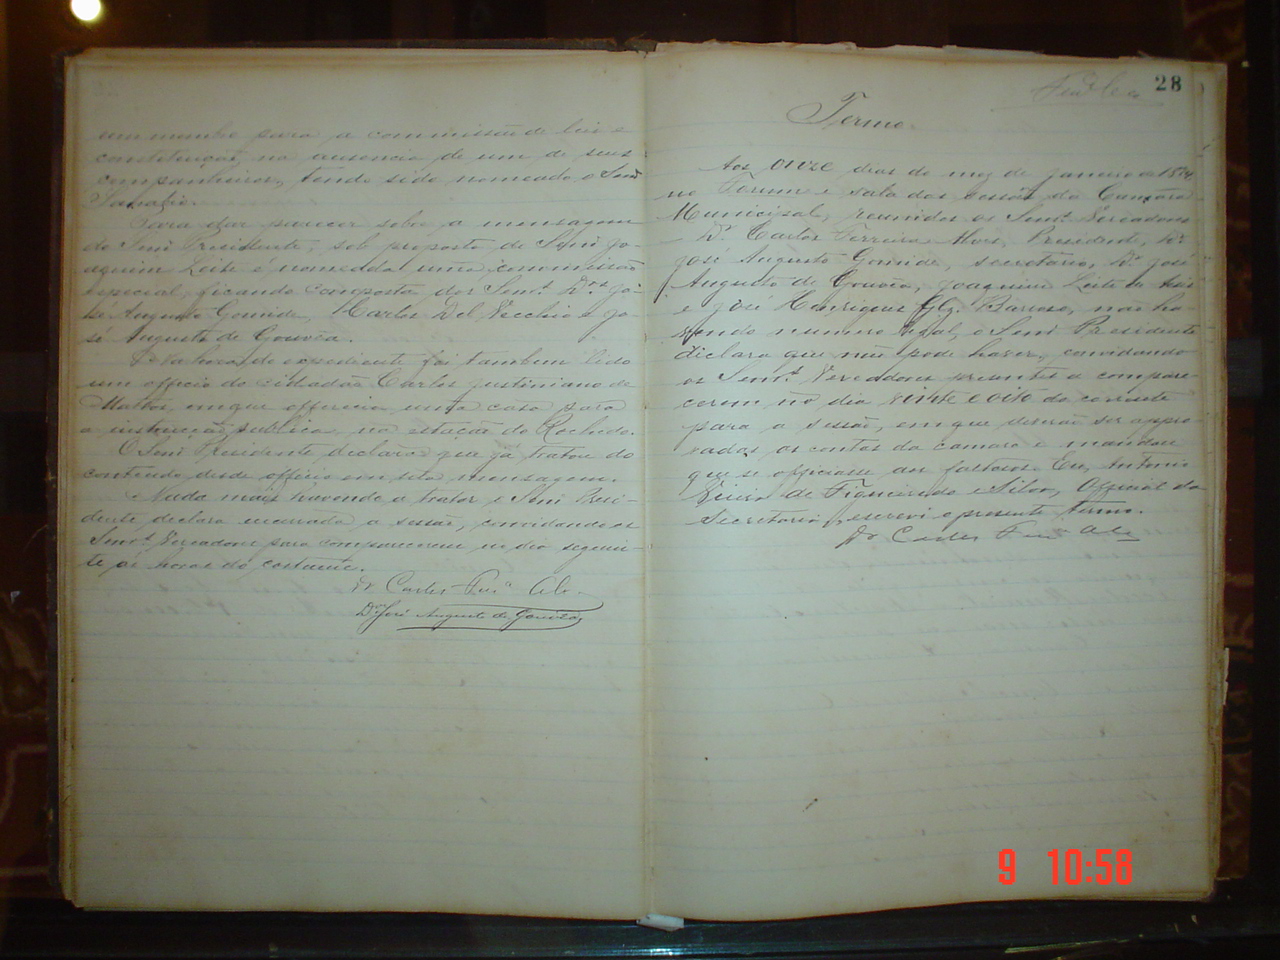 um membro para a commissão de leis e
constituição, na ausencia de um de seus
companheiros, tendo sido nomeado o Senr.
Para dar parecer sobre a mensagem
do Senr. Presidente, sob proposta do Senr. Jo-
aquim Leite é nomeada uma commissão
especial, ficando composta dos Senrs. Drs. Jo-
sé Augusto Gomide, Carlos Del Vecchio e Jo-
sé Augusto de Gouvêa.
Na hora do expediente foi tambem lido
um officio do cidadão Carlos Justiniano de
Mattos, em que offerecia uma casa para
a instrucção publica, na estação do Rochedo.
O Senr. Presidente declara que já tratou do
conteudo desde officio em sua mensagem.
Nada mais havendo a tratar o Senr. Presi-
dente declara encerrada a sessão, convidando os
Senrs. Vereadores para comparecerem no dia seguin-
te ás horas do costume.
Dr Carlos Ferra Alv.
Dr. José Augusto de Gouvêa
28
Termo.
Aos onze dias do mez de Janeiro de
no Forum e sala das sessões da Camara
Municipal, reunidos os Senrs. Vereadores
Dr. Carlos Ferreira Alves, Presidente, Dr.
José Augusto Gomide, secretario, Dr. José
Augusto de Gouvêa, Joaquim Leite
e José Henriques Barroso, não ha-
vendo numero legal, o Senr. Presidente
declara que não pode haver, convidando
os Senrs. Vereadores presentes a compare-
cerem no dia vinte e oito do corrente
para a sessão, em que deverão ser appro-
vadas as contas da camara e mandou
que se officiasse aos faltosos. Eu, Antonio
de Figueiredo e Silva, Official da
Secretaria, escrevi o presente termo.
Dr Carlos Ferra Alv
9 10:58